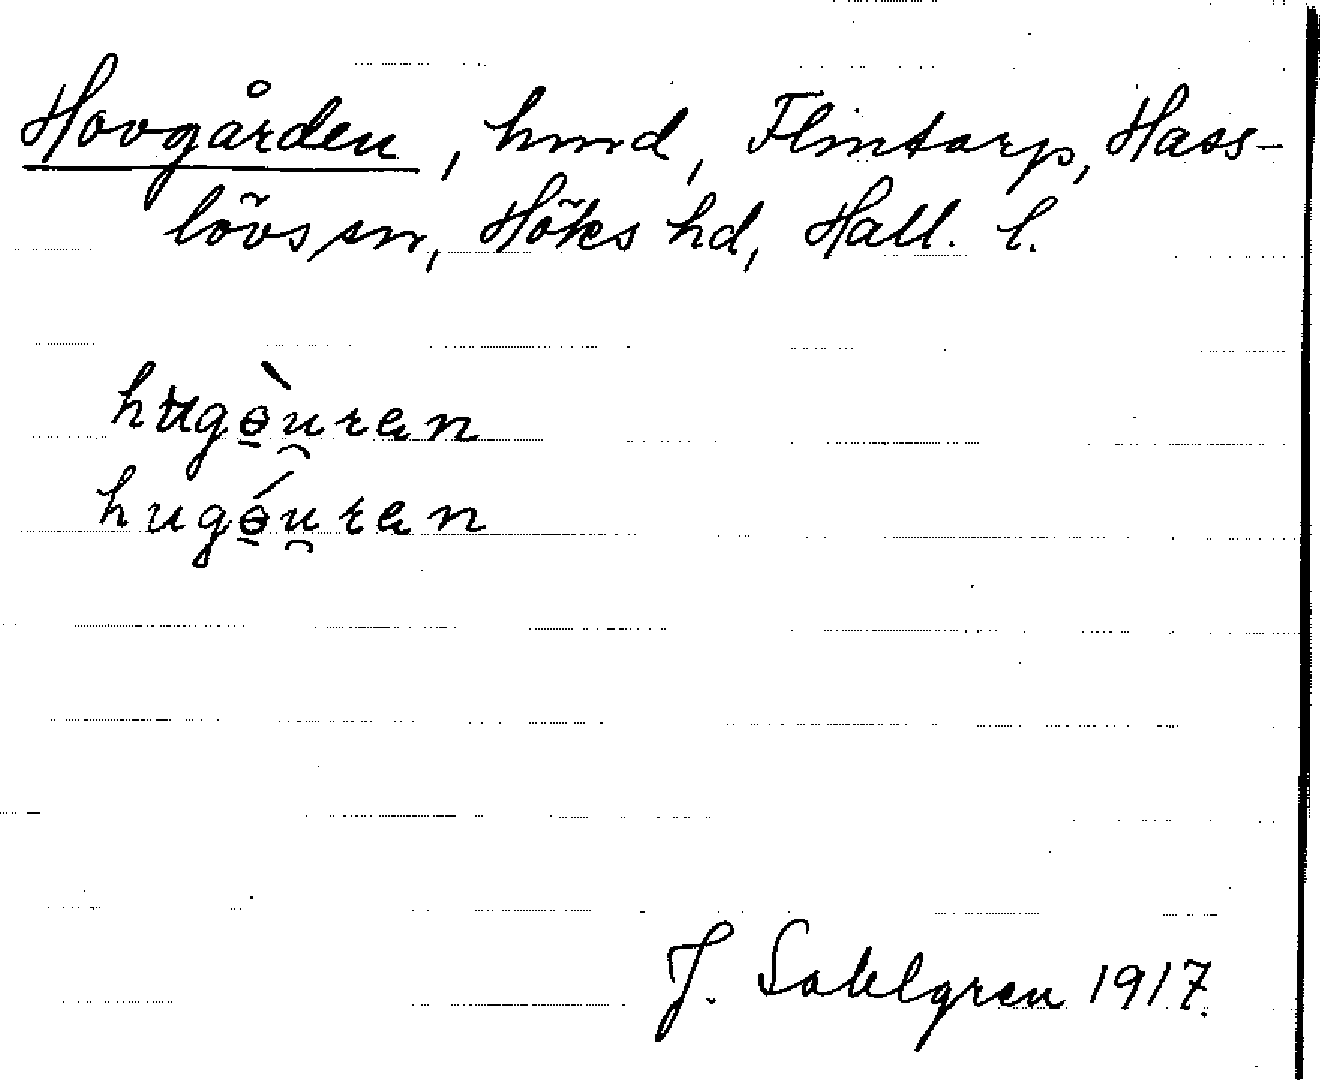 Hovgården, hmd, Flintarp, Hass-
lövs sn, Höks hd, Hall. l.
hugə̠̀u̯ren
hugə̠́u̯ren
J. Sahlgren 1917.